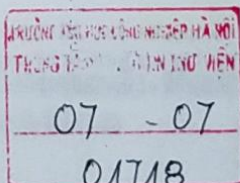 TRƯỜNG ĐẠI HỌC CÔNG NGHIỆP HÀ NỘI
TRUNG TÂM THƯ VIỆN
07 - 07
01718